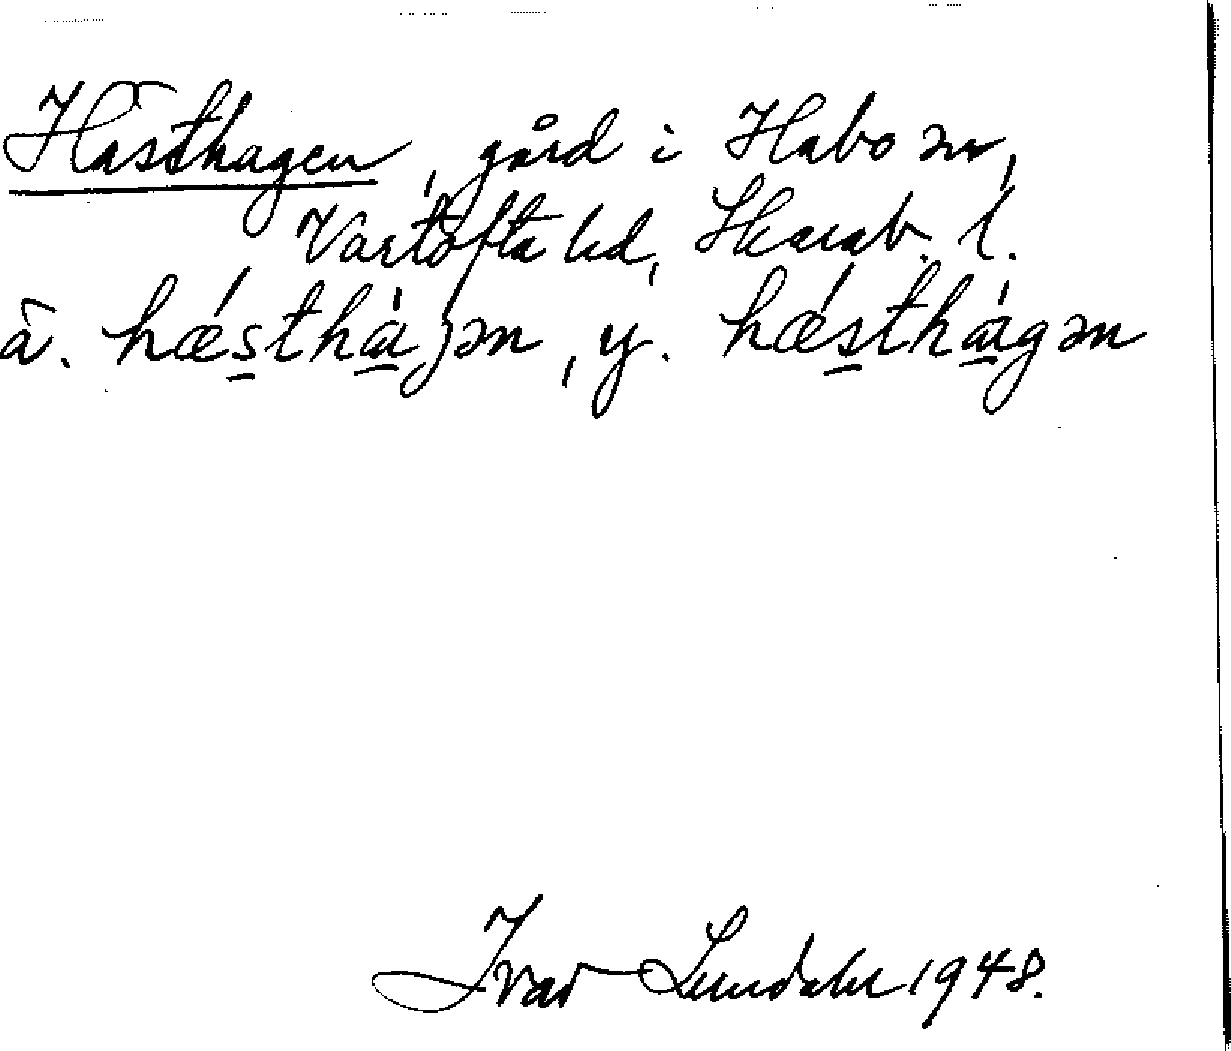 Hästhagen, gård i Habo sn,
Vartofta hd, Skarab. l.
ä. hǽsthàʒən, y. hǽsthàgən
Ivar Lundahl 1948.